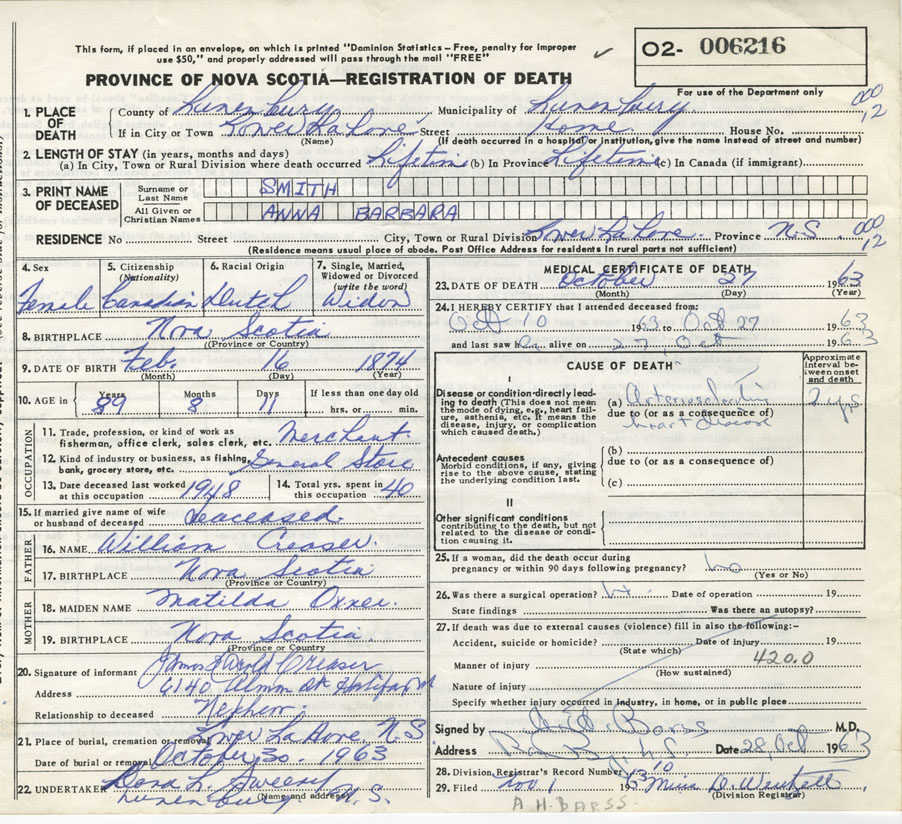 This form, if placed in an envelope, on which is printed "Dominion Statistics – Free, penalty for improper
use $50," and properly addressed will pass through the mail "FREE"
O2- 006216
PROVINCE OF NOVA SCOTIA—REGISTRATION OF DEATH
For use of the Department only
1. PLACE OF DEATH County of Lunenburg Municipality of Lunenburg 000 12
If in City or Town Lower LaHave Street Home House No.
(Name) (If death occurred in a hospital or institution, give the name instead of street and number)
2. LENGTH OF STAY (in years, months and days)
(a) In City, Town or Rural Division where death occurred Lifetime (b) In Province Lifetime (c) In Canada (if immigrant)
3. PRINT NAME OF DECEASED Surname or Last Name SMITH
All Given or Christian Names ANNA BARBARA
RESIDENCE No Street City, Town or Rural Division Lower LaHave Province N.S. 000 12
(Residence means usual place of abode. Post Office Address for residents in rural parts not sufficient)
4. Sex Female
5. Citizenship (Nationality) Canadian
6. Racial Origin Dutch
7. Single, Married, Widowed or Divorced (write the word) Widow
8. BIRTHPLACE Nova Scotia
(Province or Country)
9. DATE OF BIRTH Feb. 16 1874
(Month) (Day) (Year)
10. AGE in Years 89 Months 8 Days 11 If less than one day old hrs. or min.
OCCUPATION
11. Trade, profession or kind of work as fisherman, office clerk, sales clerk, etc. Merchant
12. Kind of industry or business, as fishing, bank, grocery store, etc. General Store
13. Date deceased last worked at this occupation 1948
14. Total yrs. spent in this occupation 40
15. If married give name of wife or husband of deceased deceased.
FATHER
16. NAME William Creaser.
17. BIRTHPLACE Nova Scotia
(Province or Country)
MOTHER
18. MAIDEN NAME Matilda Oxner.
19. BIRTHPLACE Nova Scotia
(Province or Country)
20. Signature of informant Creaser
Address 6140 Almon St Halifax
Relationship to deceased Nephew
21. Place of burial, cremation or removal Lower LaHave, N.S
Date of burial or removal October 30. 1963
22. UNDERTAKER Dora L Sweeny
Lunenburg N.S.
(Name and address)
MEDICAL CERTIFICATE OF DEATH
23. DATE OF DEATH October 27 1963
(Month) (Day) (Year)
24. I HEREBY CERTIFY that I attended deceased from:
Oct 10 1963 to Oct 27 1963
and last saw h alive on 27 Oct 1963
CAUSE OF DEATH
Approximate interval between onset and death
I
Disease or condition directly leading to death (This does not mean the mode of dying, e.g., heart failure, asthenia, etc. It means the disease, injury, or complication which caused death.)
(a) Arteriosclerotic 2 yrs
due to (or as a consequence of)
heart disease
Antecedent causes
Morbid conditions, if any, giving rise to the above cause, stating the underlying condition last.
(b)
due to (or as a consequence of)
(c)
II
Other significant conditions contributing to the death, but not related to the disease or condition causing it.
25. If a woman, did the death occur during pregnancy or within 90 days following pregnancy? no
(Yes or No)
26. Was there a surgical operation? Date of operation 19
State findings Was there an autopsy?
27. If death was due to external causes (violence) fill in also the following:–
Accident, suicide or homicide? Date of injury 19
(State which)
Manner of injury 420.0
(How sustained)
Nature of injury
Specify whether injury occurred in industry, in home, or in public place
Signed by Barss M.D.
Address Date 28 Oct 1963
28. Division Registrar's Record Number 10
29. Filed 1963 Miss D.
(Division Registrar)
A H. BARSS